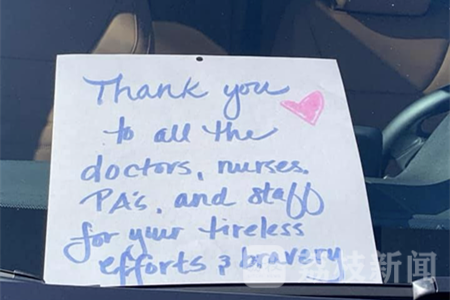 Thank you
to all the
doctors, nurses.
PA's, and staff
for your tireless
efforts & bravery
荔枝新闻